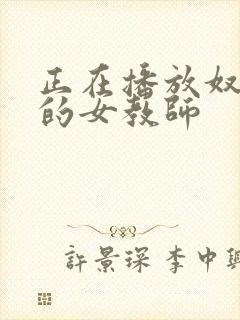 正在播放奴
的女教師
許景琛 李中興